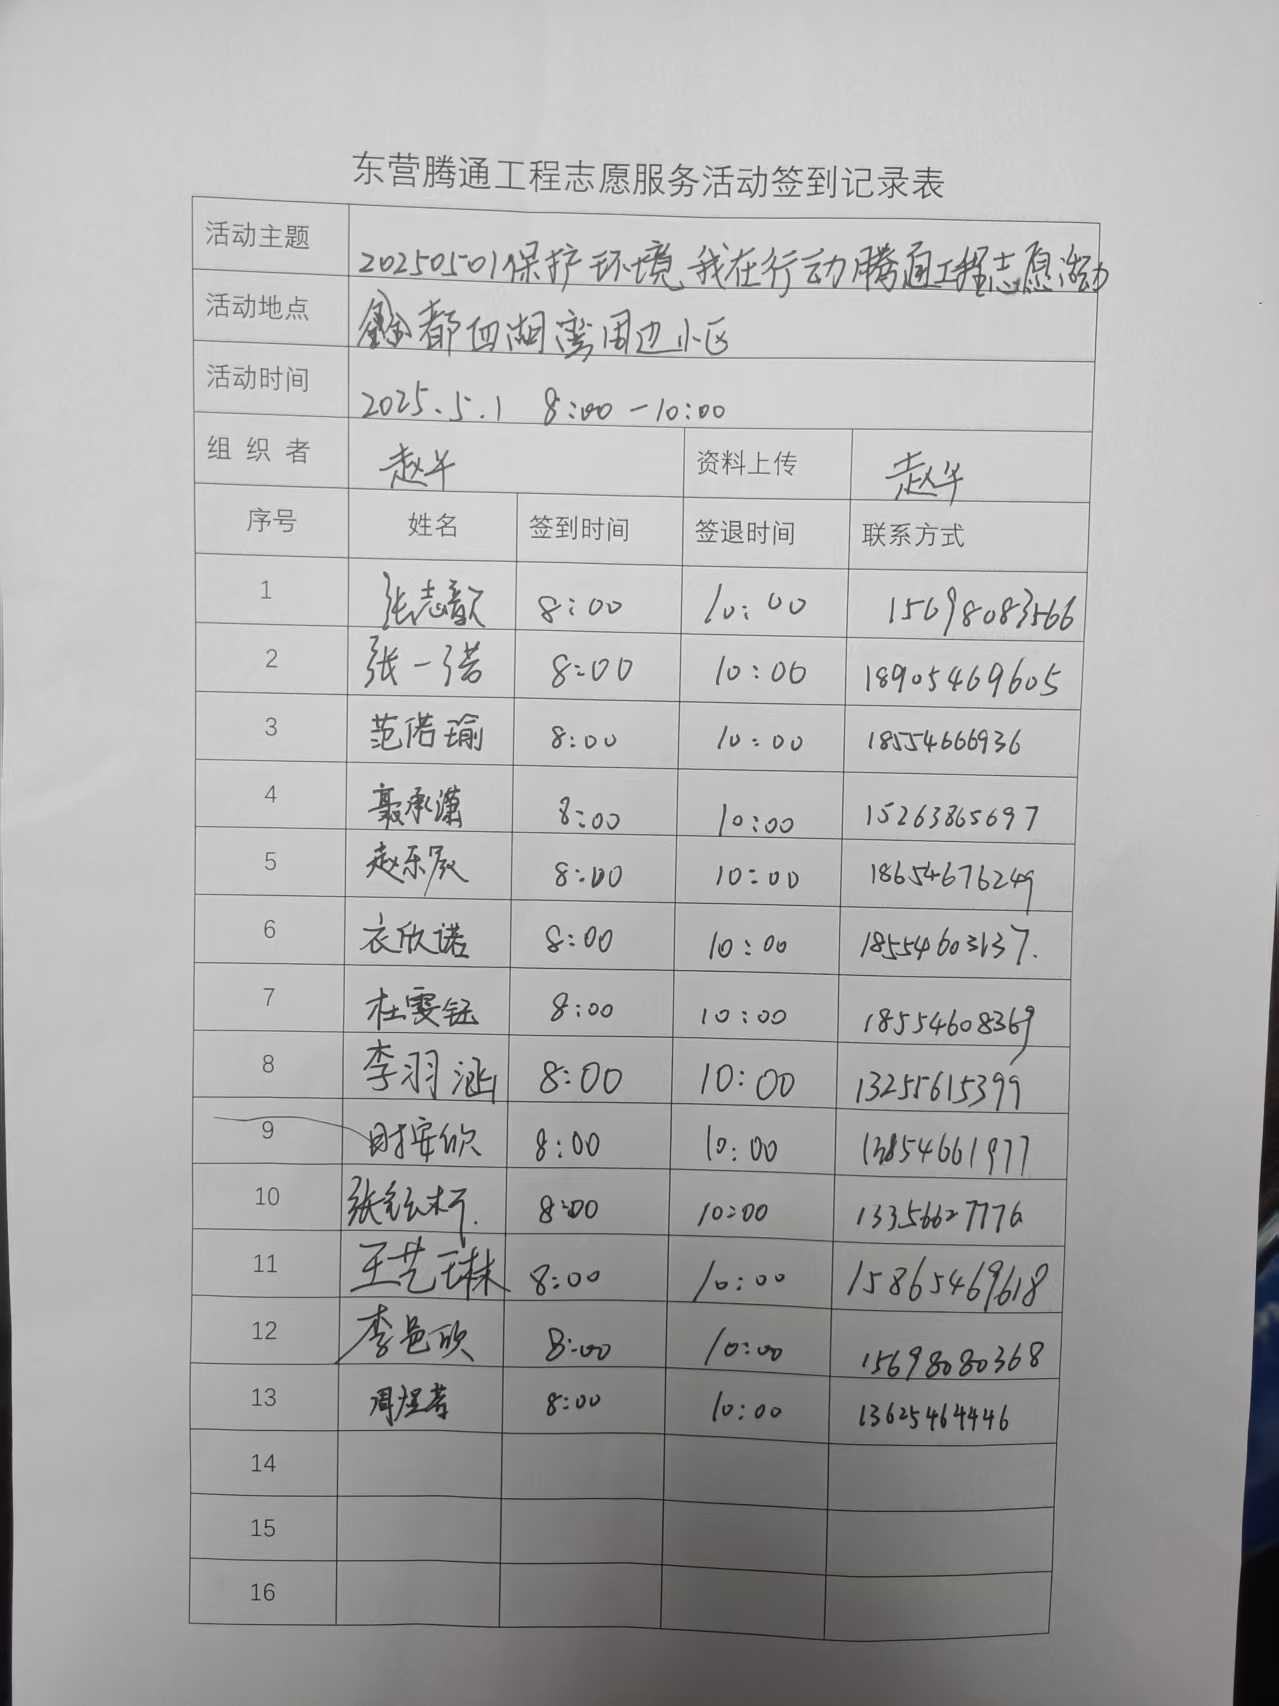 东营腾通工程志愿服务活动签到记录表
活动主题 20250501保护环境、我在行动腾通工程志愿活动
活动地点 鑫都西湖湾周边小区
活动时间 2025.5.1 8:00-10:00
组织者 赵华 资料上传 赵华
序号 姓名 签到时间 签退时间 联系方式
1 张志歆 8:00 10:00 15698083566
2 张一诺 8:00 10:00 18905469605
3 范偌瑜 8:00 10:00 18554666936
4 承潇 8:00 10:00 15263865697
5 赵乐 8:00 10:00 18654676249
6 衣欣诺 8:00 10:00 18554603137.
7 杜雯钰 8:00 10:00 18554608369
8 李羽涵 8:00 10:00 13255615399
9 时安欣 8:00 10:00 13854661977
10 张 8:00 10:00 13356627776
11 王艺琳 8:00 10:00 15865469618
12 李邑欣 8:00 10:00 15698080368
13 周煜 8:00 10:00 13625464446
14
15
16